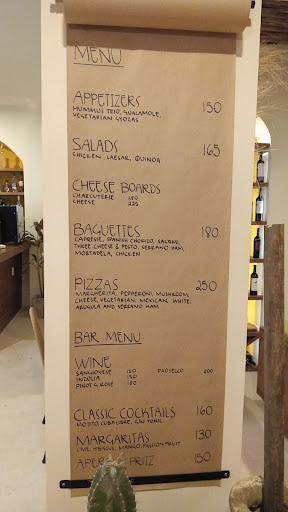 MENU
APPETIZERS 150
HUMMUS TRIO, GUALAMOLE,
VEGETARIAN GYOZAS
SALADS 165
CHICKEN CAESAR, QUINOA
CHEESE BOARDS
CHARCUTERIE 250
CHEESE 225
BAGUETTES 180
CAPRESE, SPANISH CHORIZO, SALAMI,
THREE CHEESE & PESTO, SERRANO HAM,
MORTADELA, CHICKEN
PIZZAS 250
MARGHERITA, PEPPERONI, MUSHROOM,
CHEESE, VEGETARIAN, MEXICAN, WHITE,
ARUGULA AND SERRANO HAM
BAR MENU
WINE
SANGIOVESE 150 PROSECCO 200
INZOLIA 150
PINOT G. ROSE 180
CLASSIC COCKTAILS 160
MOJITO, CUBA LIBRE, GIN TONIC
MARGARITAS 130
LIME, HIBISCUS, MANGO, PASSION FRUIT
APEROL SPRITZ 150